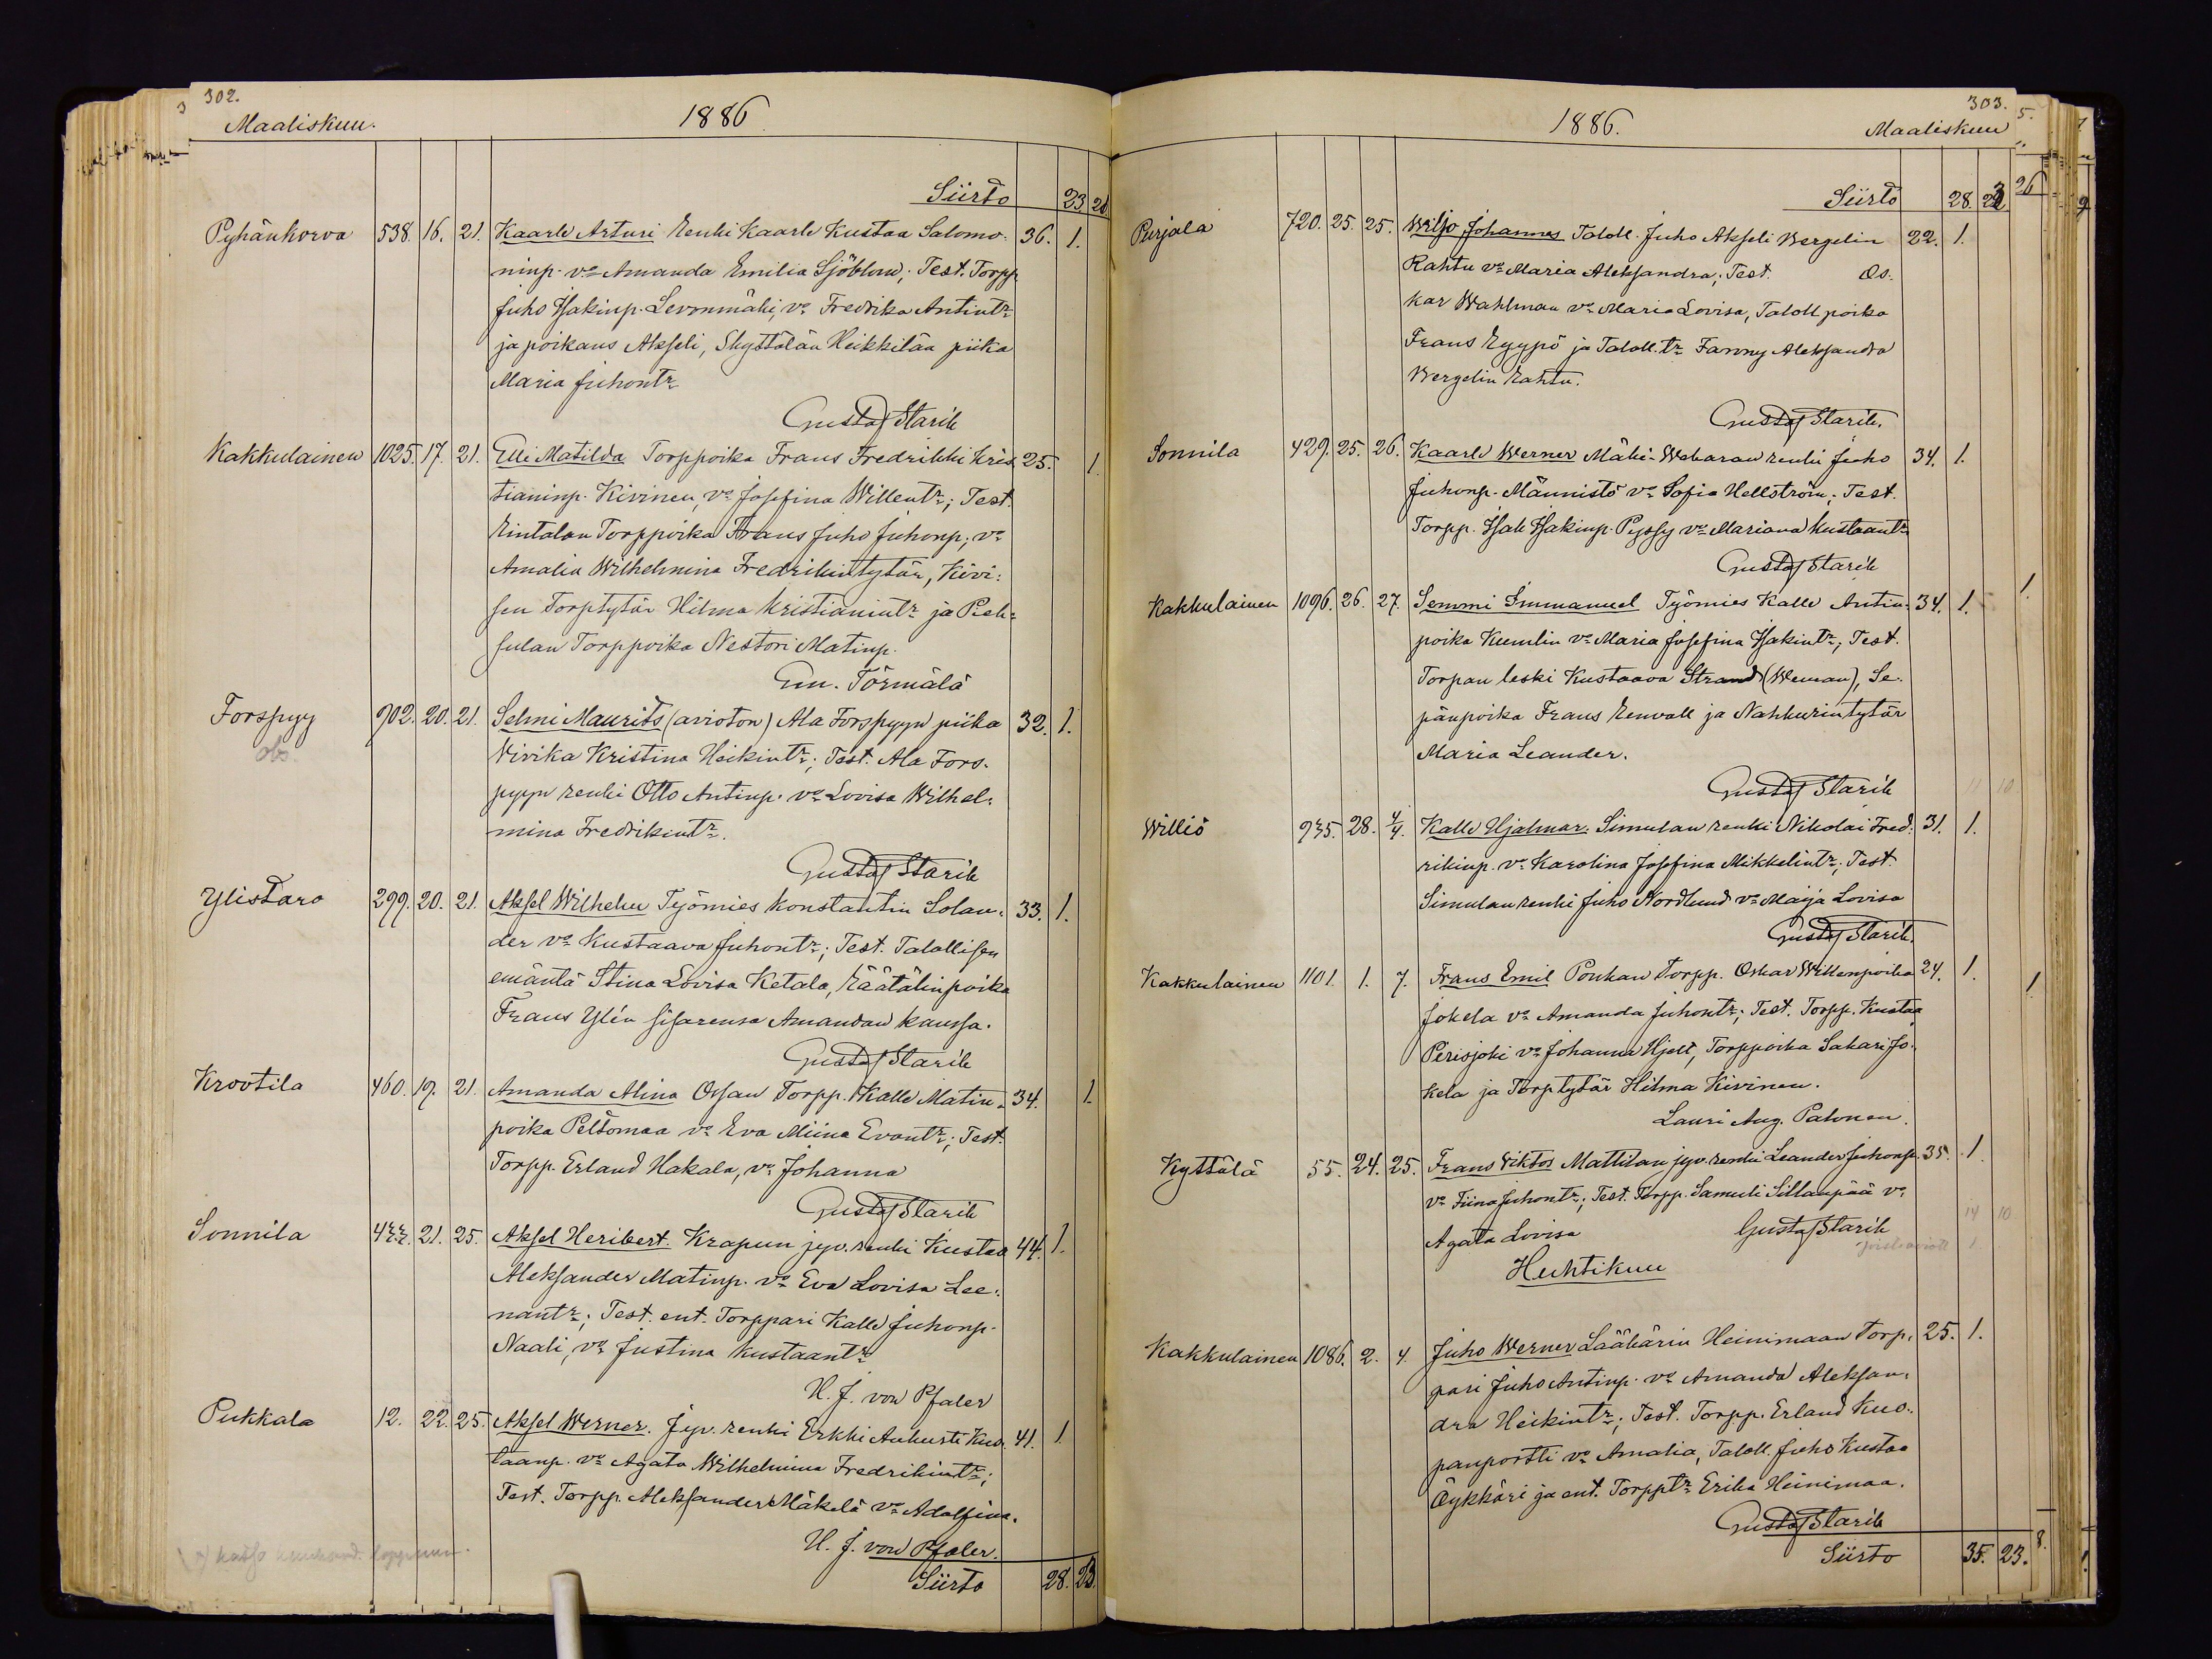 302.
Maaliskuu.
1886
Siirto 23 20
Pyhänkorva 538. 16. 21. Kaarle Arturi renki Kaarle Kustaa Salomo- 36. 1.
ninp. vo Amanda Emilia Sjöblom; Test. Torpp.
Juho Isakinp. Levonmäki, vo Fredrika Antintr
ja poikans Akseli, Skyttälän Heikkilän piika
Maria Juhontr
Gustaf Starck
Kakkulainen 1025. 17. 21. Elli Matilda Torppoika Frans Fredrikki Kris- 25. 1.
tianinp. Kivinen, vo Josefina Willentr; Test.
Rintalan Torppoika Frans Juho Juhonp; vo
Amalia Wilhelmina Fredrikintytär, Kivi-
sen Torptytär Hilma Kristianintr ja Piek-
sulan Torppoika Nestori Matinp.
Em. Törmälä
Forspyy 902. 20. 21. Selmi Maurits (avioton) Ala Forspyyn piika 32. 1.
ob.
Vivika Kristina Heikintr; Test. Ala Fors-
pyyn renki Otto Antinp. vo Lovisa Wilhel-
mina Fredrikintr.
Gustaf Starck
Ylistaro 299. 20. 21. Aksel Wilhelm Työmies Konstantin Solan- 33. 1.
der vo Kustaava Juhontr; Test. Talollisen
emäntä Stina Lovisa Ketala, Räätälinpoika
Frans Ylén sisarensa Amandan kanssa.
Gustaf Starck
Krootila 460. 19. 21. Amanda Alina Ossan Torpp. Kalle Matin- 34. 1.
poika Peltomaa vo Eva Miina Evantr; Test.
Torpp. Erland Hakala, vo Johanna
Gustaf Starck
Sonnila 21. 25. Aksel Heribert. Krapun jyv. renki Kustaa 44. 1.
Aleksander Matinp. vo Eva Lovisa Lee-
nantr; Test. ent. Torppari Kalle Juhonp.
Naali, vo Justina Kustaantr
H. J. von Pfaler
Pukkala 12. 22. 25. Aksel Werner. Jyv. renki Erkki Aukusti Kus- 41. 1
taanp. vo Agata Wilhelmina Fredrikintr;
Test. Torpp. Aleksander Mäkelä vo Adolfina.
H. J. von Pfaler.
Siirto 28. 23.
303.
1886.
Maaliskuu
Siirto 28.
Purjala 720. 25. 25. Wiljo Johannes Taloll. Juho Akseli Wergelin 22. 1.
Rahtu vo Maria Aleksandra; Test. Os-
kar Wahlman vo Maria Lovisa, Taloll poika
Frans Ryypö ja Taloll. tr Fanny Aleksandra
Wergelin Rahtu.
Gustaf Starck.
Sonnila 429. 25. 26. Kaarle Werner Mäki-Webaran renki Juho 34. 1.
Juhonp. Männistö vo Sofia Hellström; Test.
Torpp. Isak Isakinp. Pyssy vo Mariana Kustaantr
Gustaf Starck
Kakkulainen 1096. 26. 27. Semmi Immanuel Työmies Kalle Antin- 34. 1.
poika Kumlin vo Maria Josefina Isakintr; Test.
Torpan leski Kustaava Strand (Weman), Se-
pänpoika Frans Renvall ja Nahkurintytär
Maria Leander.
Gustaf Starck
Williö 28. 4/4. Kalle Hjalmar. Simulan renki Nikolai Fred- 31. 1.
rikinp. vo Karolina Josefina Mikkelintr; Test.
Simulan renki Juho Nordlund vo Maija Lovisa
Gustaf Starck.
Kakkulainen 1101. 1. 7. Frans Emil Ponkan Torpp. Oskar Willenpoika 24. 1.
Jokela vo Amanda Juhontr; Test. Torpp. Kustaa
Perisjoki vo Johanna Hjelt, Torppoika Sakari Jo-
kela ja Torptytär Hilma Kivinen.
Lauri Aug. Palonen.
Kyttälä 55. 24. 25. Frans Viktor Mattilan jyv. renki Leander Juhonp. 35. 1
vo Fiina Juhontr; Test. Torpp. Samuli Sillanpää vo
Agata Lovisa Gustaf Starck
Huhtikuu
Kakkulainen 1086. 2. 4. Juho Werner Lääkärin Heinimaan Torp- 25. 1.
pari Juho Antinp. vo Amanda Aleksan-
dra Heikintr; Test. Torpp. Erland Kuo-
panportti vo Amalia, Taloll. Juho Kustaa
Äykkäri ja ent. Torpptr Erika Heinimaa.
Gustaf Starck
Siirto 35. 23.